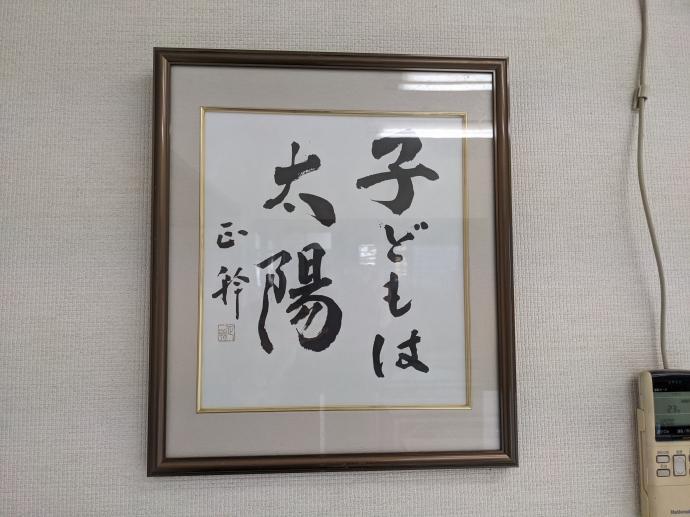 子どもは
太陽
正幹
23